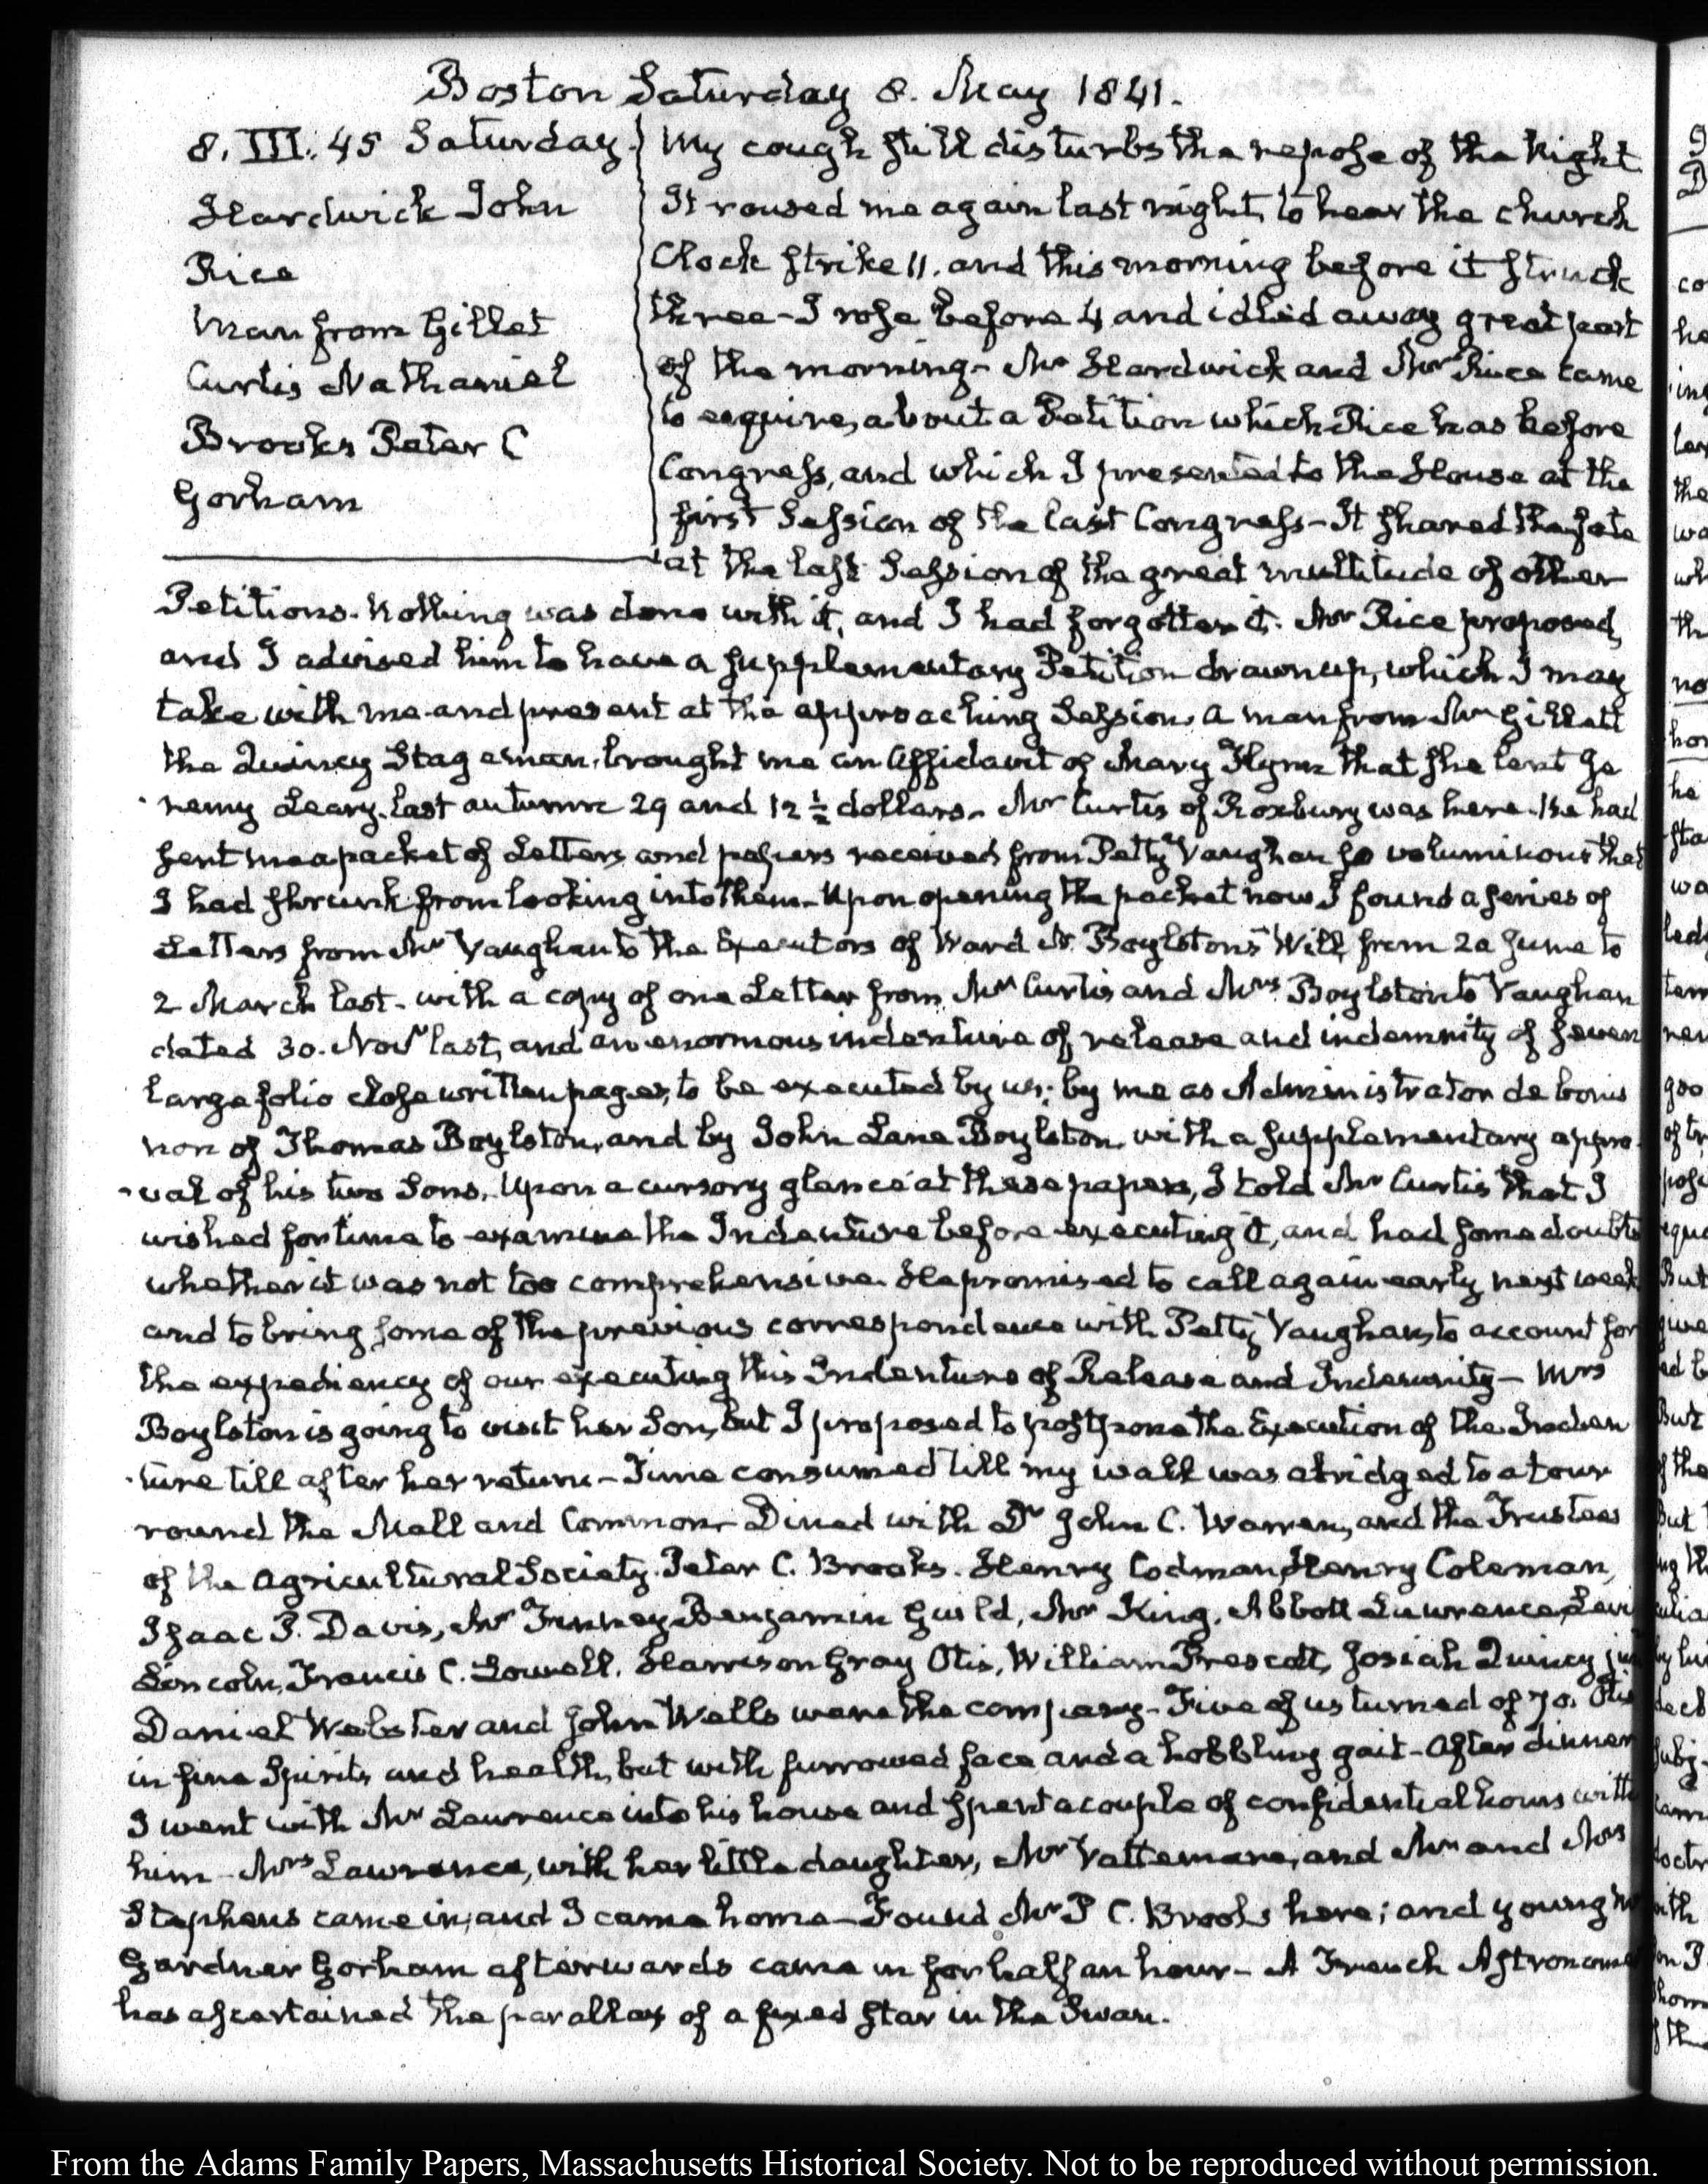 Boston Saturday 8. May 1841.
8. III: 45 Saturday.
Hardwick John
Rice
Man from Gillet
Curtis Nathaniel
Brooks Peter C
Gorham
My cough still disturbs the repose of the Night
It roused me again last night, to hear the church
Clock strike 11. and this morning before it struck
three - I rose before 4 and idled away great part
of the morning - Mr Hardwick and Mr Rice came
to enquire, about a Petition which Rice has before
Congress, and which I presented to the House at the
first Session of the last Congress - It shared the fate
at the last Session of the great multitude of other
Petitions. Nothing was done with it, and I had forgotten it. Mr Rice proposed,
and I advised him to have a supplementary Petition drawn up, which I may
take with me and present at the approaching Session. A man from Mr Gillett
the Quincy Stage man, brought me an Affidavit of Mary Flynn that she lent Je
remy Leary last autumn 29 and 12 ½ dollars. Mr Curtis of Roxbury was here. He had
sent me a packet of Letters and papers received from Petty Vaughan so voluminous that
I had shrunk from looking into them - Upon opening the packet now I found a series of
Letters from Mr Vaughan to the Executors of Ward N. Boylston's Will, from 20 June to
2 March last. with a copy of one Letter from Mr Curtis and Mrs Boylston to Vaughan
dated 30. Novr last, and an enormous indenture of release and indemnity of seven
large folio close written pages, to be executed by us; by me as Administrator de bonis
non of Thomas Boylston, and by John Lane Boylston, with a supplementary appro
val of his two Sons. Upon a cursory glance at these papers, I told Mr Curtis that I
wished for time to examine the Indenture before executing it, and had some doubts
whether it was not too comprehensive. He promised to call again early next week
and to bring some of the previous correspondence with Petty Vaughan, to account for
the expediency of our executing this Indenture of Release and Indemnity - Mrs
Boylston is going to visit her Son, but I proposed to postpone the Execution of the Inden
ture till after her return - Time consumed till my walk was abridged to a tour
round the Mall and Common - Dined with Dr John C. Warren, and the Trustees
of the Agricultural Society. Peter C. Brooks. Henry Codman, Henry Coleman,
Isaac P. Davis, Mr Benjamin Guild, Mr King, Abbott Lawrence, Levi
Lincoln, Francis C. Lowell, Harrison Gray Otis, William Prescott, Josiah Quincy
Daniel Webster and John Wells were the company - Five of us turned of 70. Otis
in fine Spirits and health, but with furrowed face and a hobbling gait - After dinner
I went with Mr Lawrence into his house and spent a couple of confidential hours with
him - Mrs Lawrence, with her little daughter, Mr Vattemare, and Mr and Mrs
Stephens came in; and I came home - Found Mr P C. Brooks here; and young
Gardner Gorham afterwards came in for half an hour - A French Astronomer
has ascertained the parallax of a fixed star in the Swan.
From the Adams Family Papers, Massachusetts Historical Society. Not to be reproduced without permission.